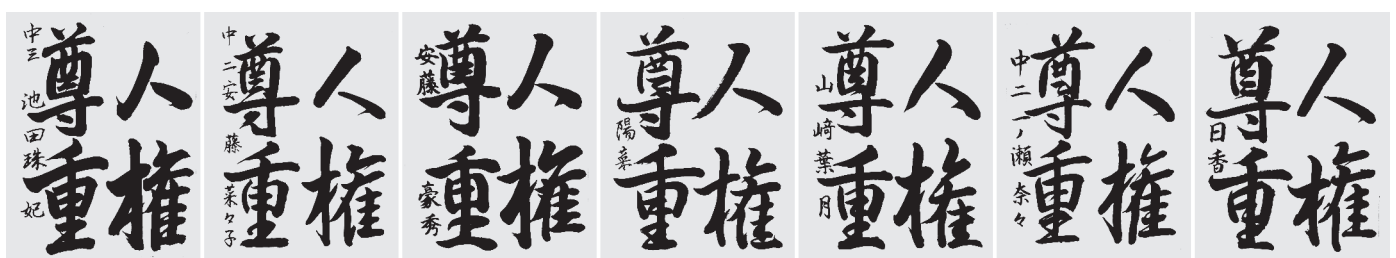 人権
尊重
中三 池田珠妃
人権
尊重
中二 安藤菜々子
人権
尊重
安藤豪秀
人権
尊重
陽菜
人権
尊重
山﨑葉月
人権
尊重
中二 一ノ瀬奈々
人権
尊重
日香